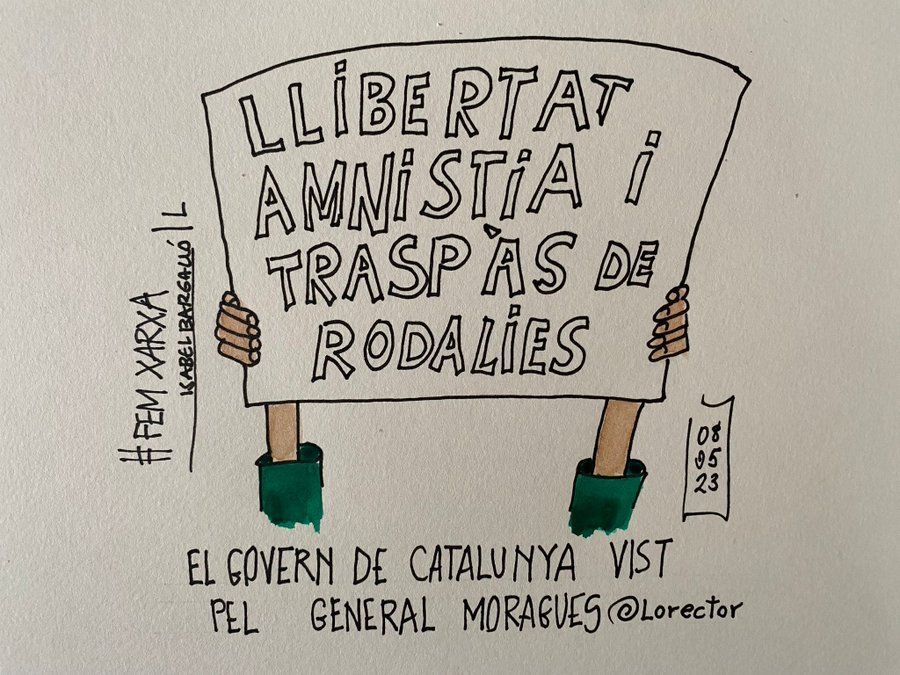 LLiBERTAT
AMNiSTiA i
TRASPÀS DE
RODALiES
#FEM XARXA
ISABEL BARGALLÓ
08
05
23
EL GOVERN DE CATALUNYA VIST
PEL GENERAL MORAGUES @Lorector